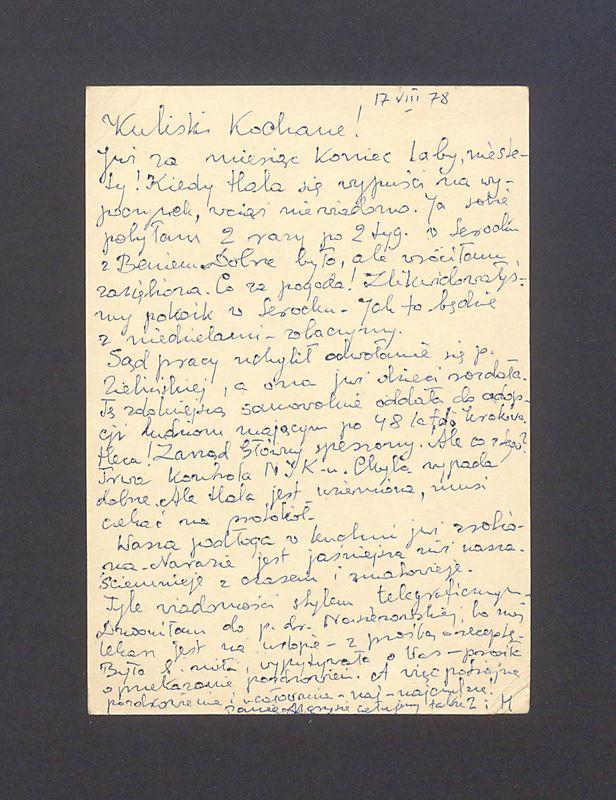 17 VIII 78
Kuliski Kochane!
Już za miesiąc koniec laby, nieste-
ty! Kiedy Hala się wypuści na wy-
poczynek, wciąż niewiadomo. Ja sobie
byłam 2 razy po 2 tyg. w Serocku
z Beniem. Dobrze było, ale wróciłam
zaziębiona. Co za pogoda! Zlikwidowałyś-
my pokoik w Serocku - Jak to będzie
z niedzielami - zobaczymy.
Sąd pracy uchylił odwołanie się p.
Zielińskiej, a ona już dzieci rozdała.
Tę zdolniejszą samowolnie oddała do adop-
cji ludziom mającym po 48 lat do Krakowa
Heca! Zarząd Główny speszony. Ale co z tego?
Trwa kontrola NIK-u. Chyba wypada
dobrze. Ale Hala jest uziemiona, musi
czekać na protokół.
Wasza podłoga w kuchni już zrobio-
na. Narazie jest jaśniejsza niż nasza.
Ściemnieje z czasem i zmatowieje.
Tyle wiadomości stylem telegraficznym.
Dzwoniłam do p. dr. bo mój
lekarz jest na urlopie - z prośbą o receptę.
Była b. miła, wypytywała o Was - prosiła
o przekazanie pozdrowień. A więc podwójne
pozdrowienia i ucałowania - naj-najczulsze.
całujemy także Z i M